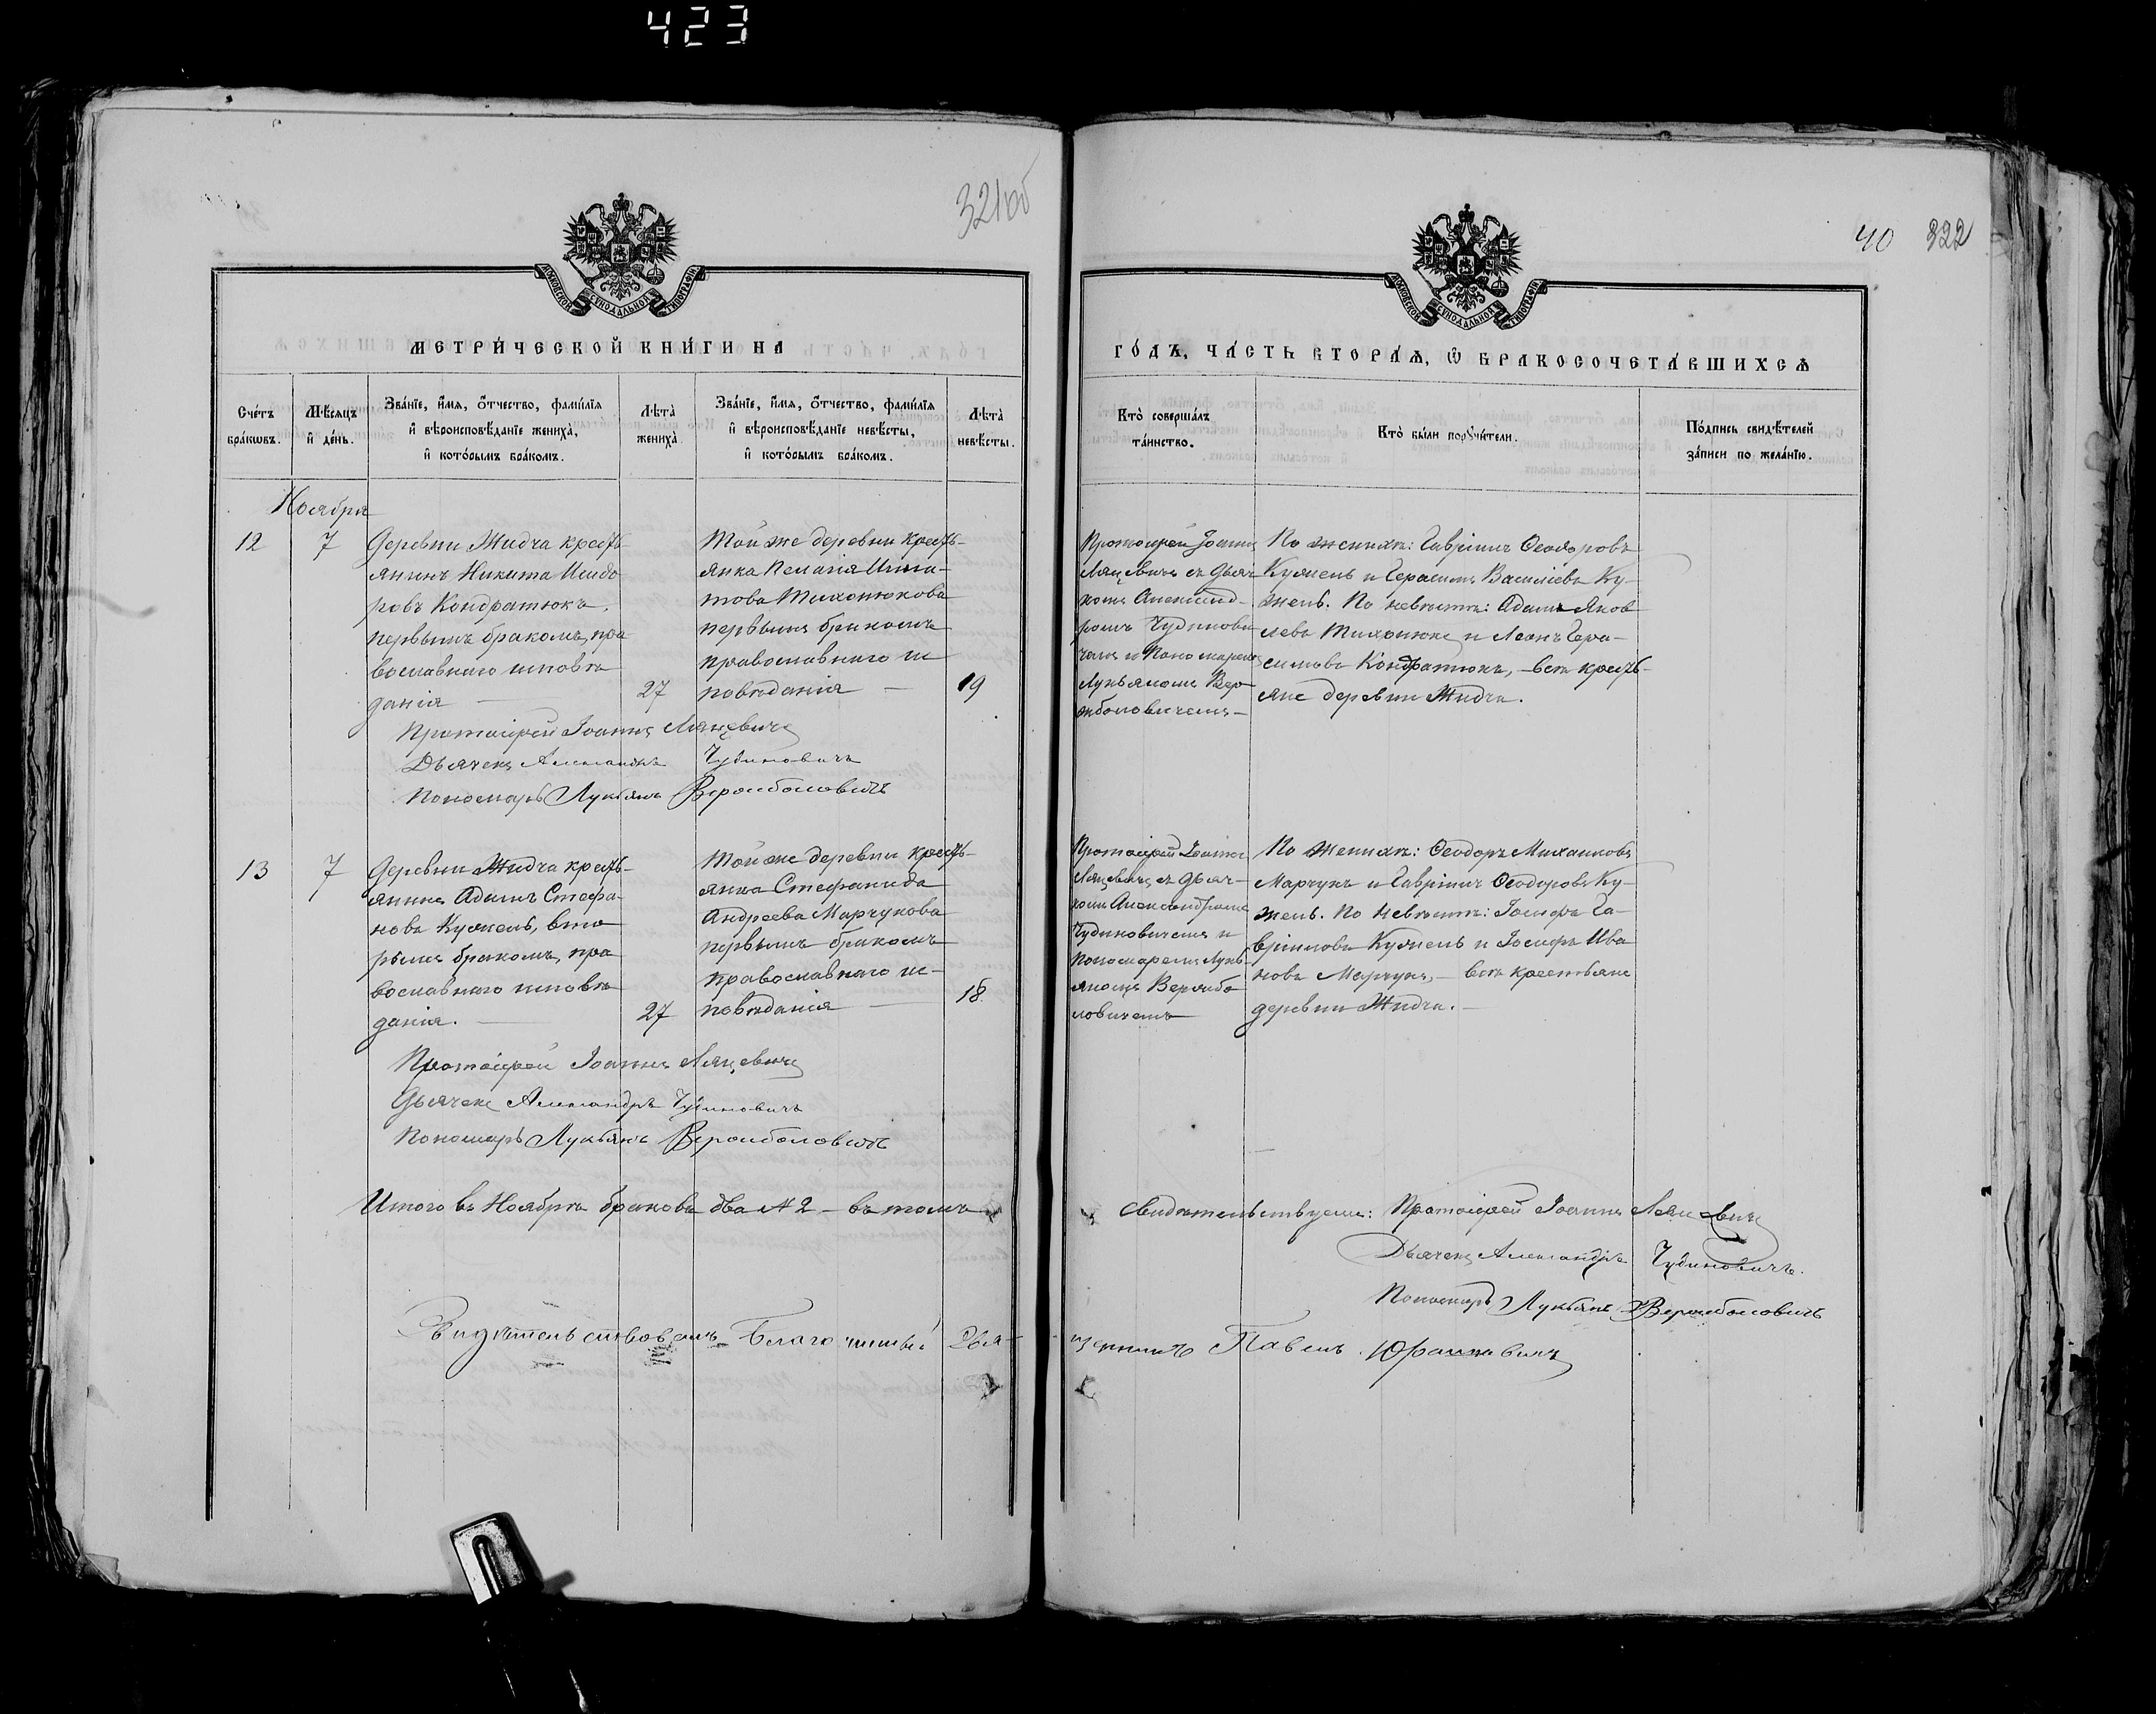 423
321об
40 322
МОСКОВСКОЙ СѴНОДАЛЬНОЙ ТИПОГРАФІИ
МОСКОВСКОЙ СѴНОДАЛЬНОЙ ТИПОГРАФІИ
МЕТРИ́ЧЕСКОЙ КНИ́ГИ НА
ГО́ДЪ, ЧА́СТЬ ВТОРА́Ѧ, Ѡ БРАКОСОЧЕТА́ВШИХСѦ
Сче́тъ
бра́кѡвъ.
Мѣ́сяцъ
и҆ де́нь.
Зва́нїе, и҆́мя, о҆́тчество, фами́лїя
и҆ вѣроисповѣ́данїе жениха̀,
и҆ кото́рымъ бра́комъ.
Лѣта̀
жениха̀.
Зва́нїе, и҆́мя, о҆́тчество, фами́лїя
и҆ вѣроисповѣ́данїе невѣ́сты,
и҆ кото́рымъ бра́комъ.
Лѣта̀
невѣ́сты.
Кто̀ соверша́лъ
та́инство.
Кто̀ бы́ли порꙋчи́тели.
По́дпись свидѣ́телей
за́писи по жела́нїю.
Ноября
12
7
Деревни Жидча кресть
янинъ Никита Исидо
ровъ Кондратюкъ,
первымъ бракомъ, пра
вославнаго исповѣ
данія —
27
Той же деревни кресть-
янка Пелагія Игна-
това Тихонюкова
первымъ бракомъ
православнаго ис
повѣданія —
19
Протоіерей Іоаннъ
Ляцевичъ съ дьяч
комъ Александ-
ромъ Чудинови
чемъ и Пономаремъ
Лукьяномъ Вер
жболовичемъ —
По женихѣ: Гавріилъ Ѳеодоровъ
Кужель и Герасимъ Василіевъ Ку-
жель. По невѣстѣ: Адамъ Яков
левъ Тихонюкъ и Леонъ Гера-
симовъ Кондратюкъ, — всѣ кресть-
яне деревни Жидча.
Протоіерей Іоаннъ Ляцевичъ
Дьячекъ Александръ Чудиновичъ
Пономарь Лукьянъ Вержболовичъ
13
7
Деревни Жидча кресть-
янинъ Адамъ Стефа-
новъ Кужель, вто
рымъ бракомъ, пра
вославнаго исповѣ
данія. —
27
Той же деревни кресть-
янка Стефанида
Андреева Марчукова
первымъ бракомъ
православнаго ис-
повѣданія —
18.
Протоіерей Іоаннъ
Ляцевичъ съ дьяч-
комъ Александромъ
Чудиновичемъ и
Пономаремъ Лукь-
яномъ Вержбо
ловичемъ
По женихѣ: Ѳеодоръ Михаиловъ
Марчукъ и Гавріилъ Ѳеодоровъ Ку-
жель. По невѣстѣ: Іосифъ Га-
вріиловъ Кужель и Іосифъ Ива
новъ Марчукъ, — всѣ крестьяне
деревни Жидча. —
Протоіерей Іоаннъ Ляцевичъ
Дьячекъ Александръ Чудиновичъ
Пономарь Лукьянъ Вержболовичъ
Итого въ Ноябрѣ браковъ два № 2 — въ томъ
свидѣтельствуемъ: Протоіерей Іоаннъ Ляцевичъ
Дьячекъ Александръ Чудиновичъ.
Пономарь Лукьянъ Вержболовичъ
Свидѣтельствовалъ Благочинный Свя-
щенникъ Павелъ Юрашкевичъ